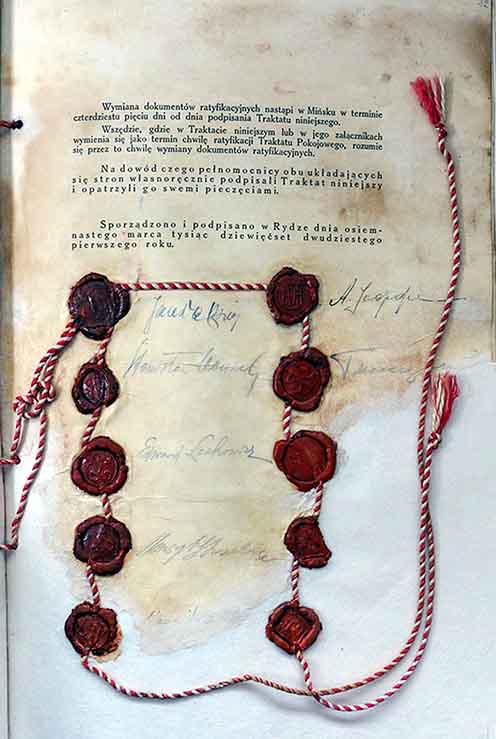 Wymiana dokumentów ratyfikacyjnych nastąpi w Mińsku w terminie
czterdziestu pięciu dni od dnia podpisania Traktatu niniejszego.
Wszędzie, gdzie w Traktacie niniejszym lub w jego załącznikach
wymienia się jako termin chwilę ratyfikacji Traktatu Pokojowego, rozumie
się przez to chwilę wymiany dokumentów ratyfikacyjnych.
Na dowód czego pełnomocnicy obu układających
się stron własnoręcznie podpisali Traktat niniejszy
i opatrzyli go swemi pieczęciami.
Sporządzono i podpisano w Rydze dnia osiem-
nastego marca tysiąc dziewięćset dwudziestego
pierwszego roku.
A.
Edward Lechowicz